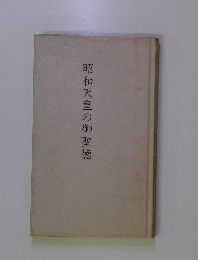 昭和天皇の御聖徳